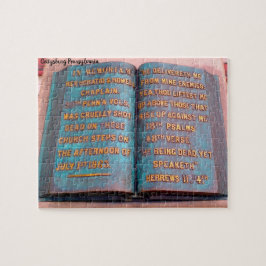 Gettysburg Pennsylvania
CHAPLAIN
PENNA VOLS.
WAS CRUELLY SHOT
DEAD ON THESE
CHURCH STEPS ON
THE AFTERNOON OF
JULY 1ST 1863.
HE DELIVERETH ME
FROM MINE ENEMIES:
YEA, THOU LIFTEST ME
ABOVE THOSE THAT
RISE UP AGAINST ME
18TH PSALMS
VERSE.
HE BEING DEAD YET
SPEAKETH
HEBREWS 11: 4